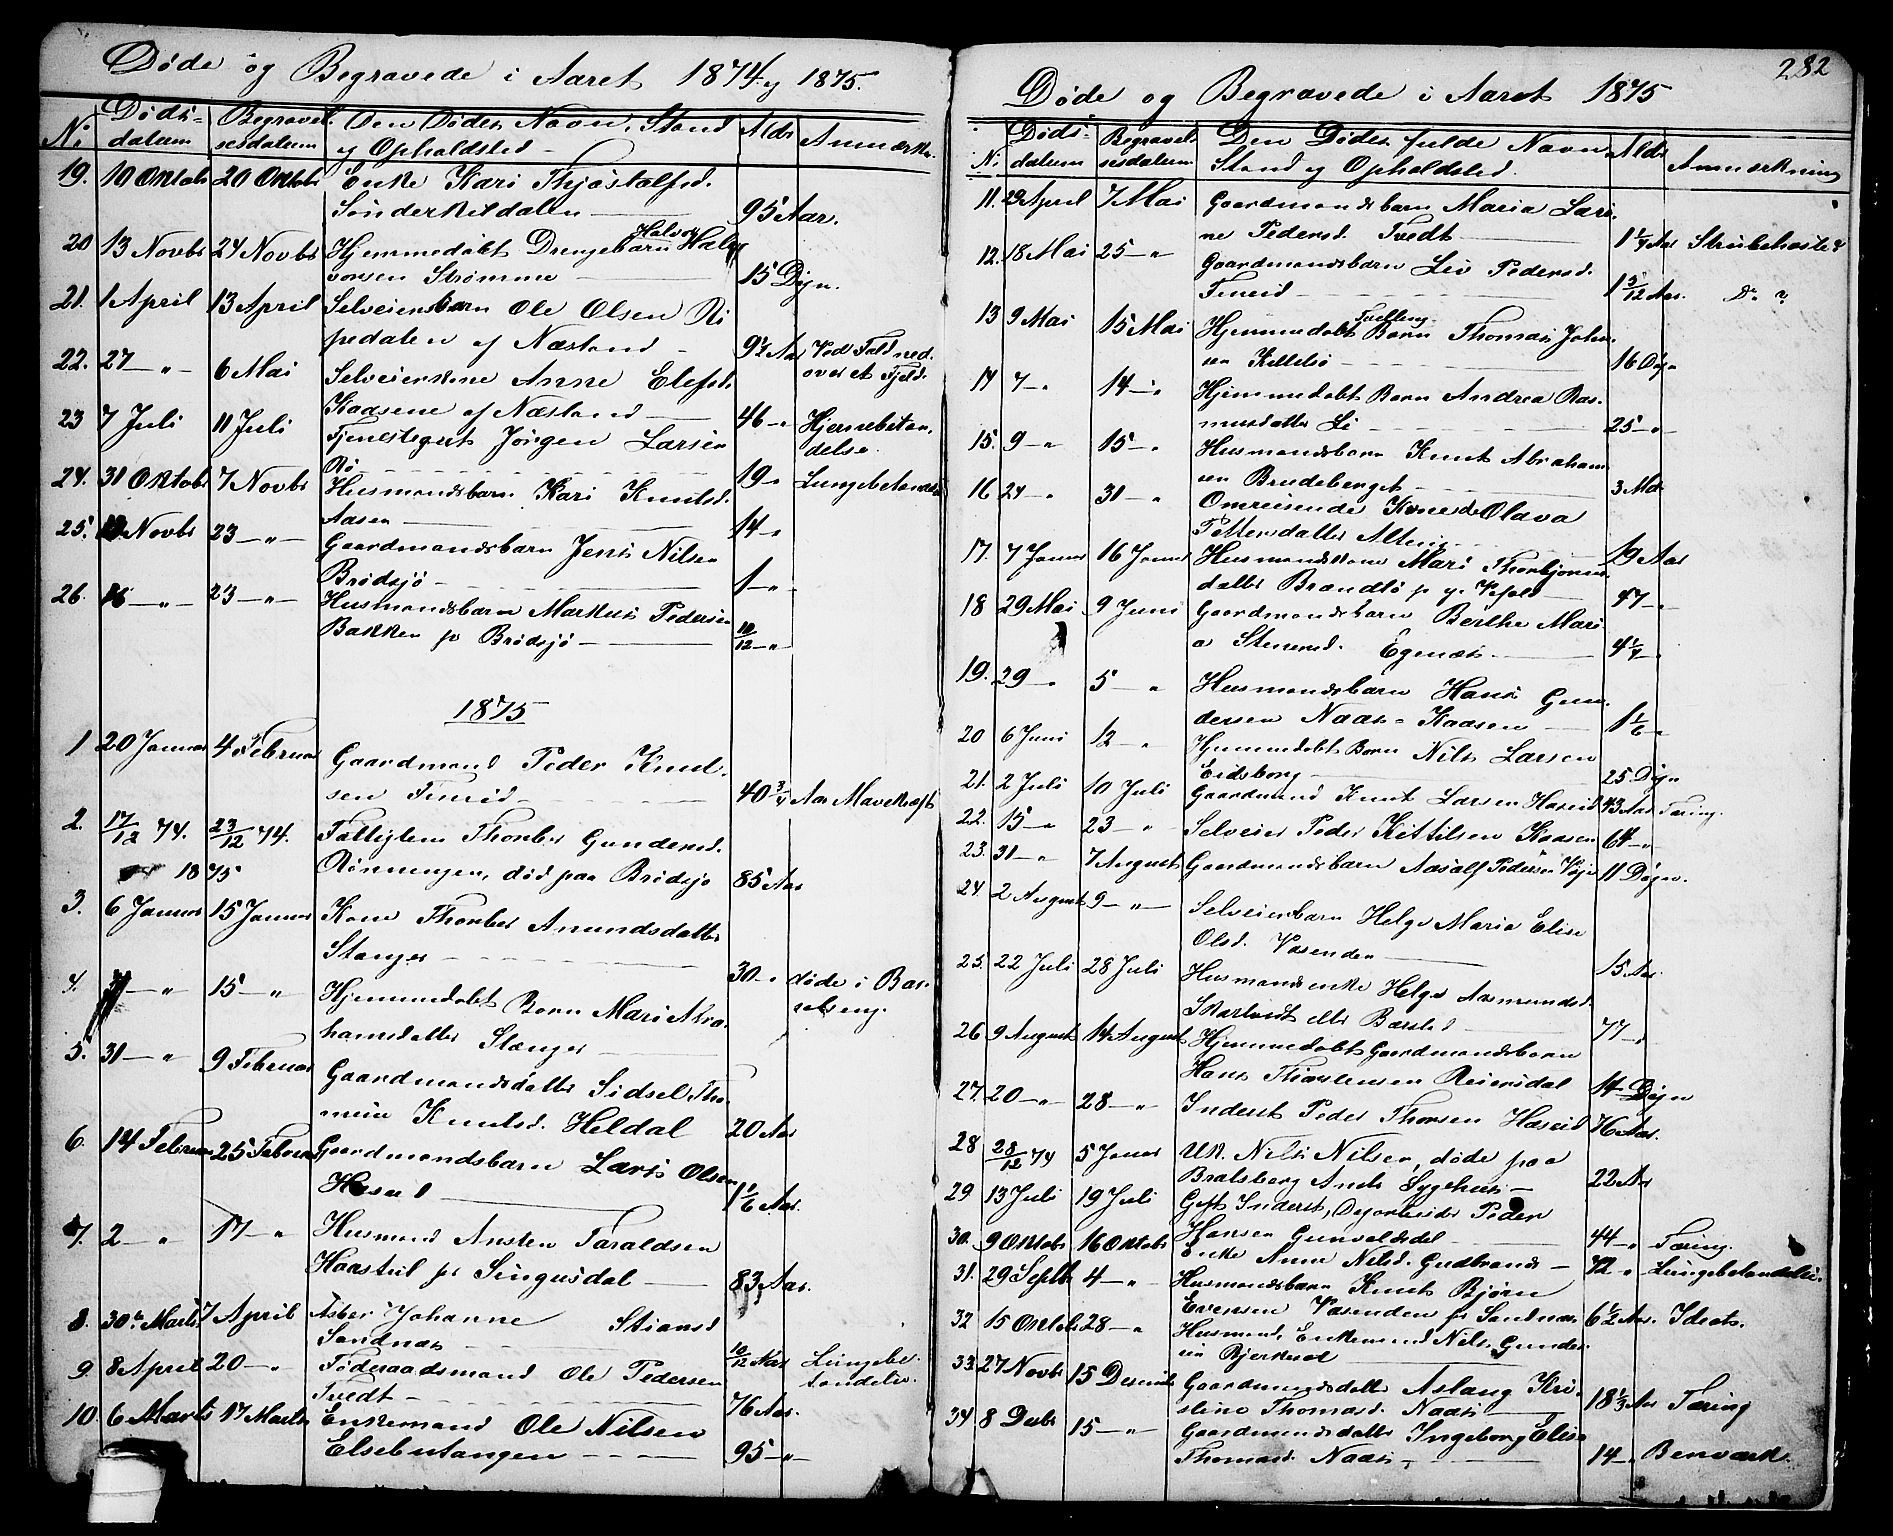 Døde og Begravede i Aaret 1874 og 1875.
No Døds- datum Begravel- sesdatum Den Dødes Navn, Stand og Opholdsted Alder Anmærkn.
19. 10 Oktob 20 Oktob Enke Kari Thjøstolfsd.
Sönderkildalen 95 Aar.
20 13 Novbr 24 Novbr Hjemmedøbt Drengebarn Halvor Halv
vorsen Strömme 15 Døgn.
21. 1 April 13 April Selveierbarn Ole Olsen Ri
pedalen af Næsland 9½ Aar Ved Fald ned
22. 27 " 6 Mai Selveierkone Anne Elefsd. over et Fjeld.
Kaasene af Næsland 46 " Hjernebetæn
23 7 Juli 11 Juli Tjenestegut Jörgen Larsen delse.
Bö 19 " Lungebetændelse
24. 31 Oktob 7 Novbr Husmandsbarn Kari Knutsd.
Aasen 14 "
25. Novbr 23 " Gaardmandsbarn Jens Nilsen
Brödsjö 1 "
26. 16 " 23 " Husmandsbarn Markus Pedersen
Bakken p Brödsjö 10/12 "
1875
1 20 Januar 4 Februar Gaardmand Peder Knud-
sen Tineid 40¾ Aar Mavekræft
2. 17/12 74. 23/12 74. Fattiglem Thorber Gundersd.
1875 Rönningen, død paa Brödsjö 85 Aar
3. 6 Januar 15 Januar Kone Thorber Anundsdatter
Stanger 30 " døde i Bar-
4. " 15 " Hjemmedøbt Barn Mari Abra- selseng.
hamsdatter Stanger
5. 31 " 9 Februar Gaardmandsdatter Sidsel Tho-
mine Knutsd. Heldal 20 Aar
6. 14 Februar 25 Februar Gaardmandsbarn Lars Olsen
Haseid 1 1/6 Aar.
7. 2 " 17 " Husmand Ansten Taraldsen
Haastul p Singusdal 83 Aar.
8. 30te Marts 7 April Asber Johanne Stiansd
Sandnæs 10/12 Aar Lungebe-
9. 8 April 20 " Föderaadsmand Ole Pedersen tændelse.
Tvedt 76 Aar.
10. 6 Marts 17 Marts Enkemand Ole Nilsen
Elsebutangen 95 "
282
Døde og Begravede i Aaret 1875
No Døds- datum Begravel- sesdatum Den Dødes fulde Navn Stand og Opholdsted. Alder Anmærkning
11. 29 April 7 Mai Gaardmandsbarn Maria Lari-
ne Pedersd. Tvedt 1¼ Aar Strubehoste
12. 18 Mai 25 " Gaardmandsbarn Liv Pedersd.
Tineid 1 5/12 Aar. Do
13 9 Mai 15 Mai Hjemmedøbt Tvilling Barn Thomas Johan-
sen Kittelsö 16 Døgn
14 7 " 14 " Hjemmedøbt Barn Andrea Ras-
musdatter Li 25 "
15. 9 " 15 " Husmandsbarn Knut Abraham-
sen Brudeberget 3 Md.
16 24 " 31 " Omreisende Kone Olava
Pettersdatter Alteren 19 Aar
17. 7 Januar 16 Januar Husmandskone Mari Thorbjörns-
datter Brandtö p. g. Vefald 47 "
18 29 Mai 9 Juni Gaardmandsbarn Berthe Mari-
a Steners d. Egenæs 4¼ "
19. 29 " 5 " Husmandsbarn Hans Gun-
dersen Naas-Kaasen 1 1/6 "
20 6 Juni 12 " Hjemmedøbt Barn Nils Larsen
Eidsborg 25 Døgn
21. 2 Juli 10 Juli Gaardmand Knut Larsen Haseid 43 Aar Tæring.
22. 15 " 23 " Selveier Peder Kittilsen Kaasen 64 "
23. 31 " 7 August Gaardmandsbarn Aasulf Pedersen Vøje 11 Døgn.
24 2 August 9 " Selveierbarn Helge Maria Elise
Olsd. Vasenden 15 Aar.
25. 22 Juli 28 Juli Husmandsenke Helge Asmundsd.
Skartvedt eller Barsted 77 "
26 9 August 14 August Hjemmedøbt Gaardmandsbarn
Hans Thorstensen Reiersdal 14 Døgn
27. 20 " 28 " Inderst Peder Thorsen Haseid 76 Aar.
28 28/12 74 5 Januar UK. Nils Nilsen, døde paa
Bratsberg Amts Sygehus 22 Aar
29 13 Juli 19 Juli Gift Inderst, Dagarbeider Peder
Hansen Gunvaldsdal 44 " Tæring.
30. 9 Oktob 16 Oktob Enke Anne Nilsd. Gudbrands 72 " Lungebetændelse.
31. 29 Septb 4 " Husmandsbarn Knut Björn
Evensen Vasenden p Sandnæs 6½ Aar. Idiot.
32 15 Oktob 28 " Husmand, Enkemand Nils Gunder-
sen Bjerkud
33. 27 Novbr 15 Decemb Gaardmandsdatter Aslaug Kri-
stine Thomasd. Naas 18⅓ Aar Tæring
34 8 Decbr 15 " Gaardmandsdatter Ingeborg Elise
Thomasd. Naas 14 " Benværk.